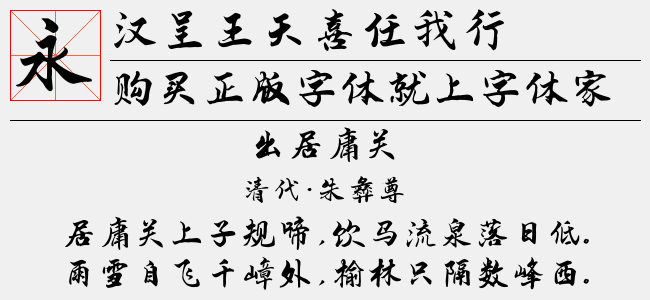 永
汉呈王天喜任我行
购买正版字体就上字体家
出居庸关
清代·朱彝尊
居庸关上子规啼,饮马流泉落日低.
雨雪自飞千嶂外,榆林只隔数峰西.